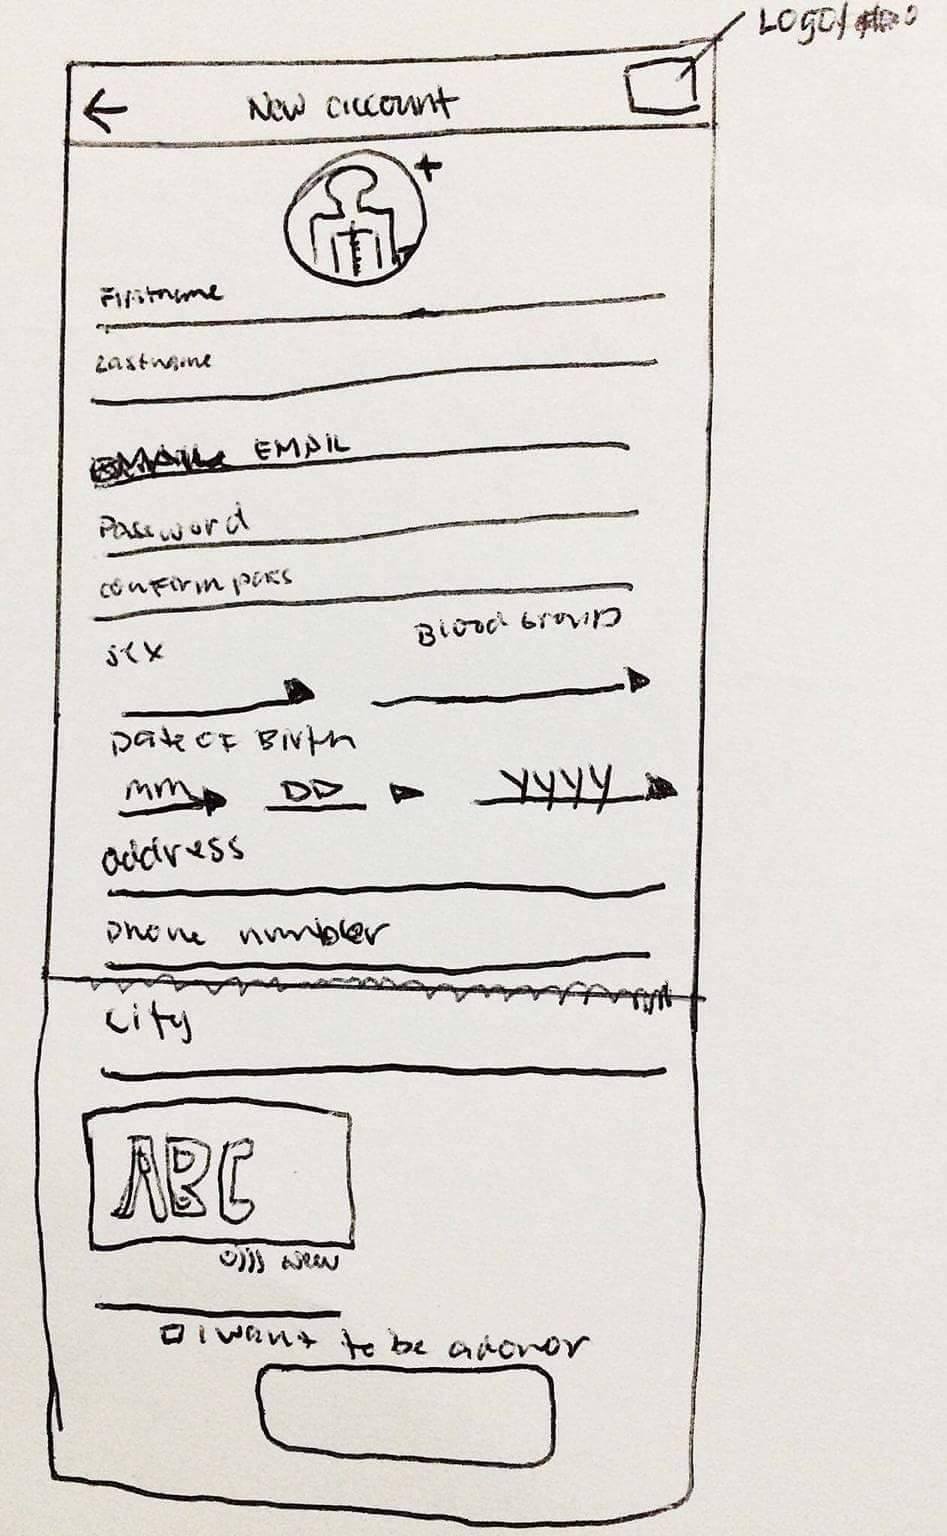 Logo/
New account
+
Firstname
Lastname
EMAIL EMAIL
Password
confirm pass
sex
Blood Group
Date OF Birth
MM DD YYYY
address
phone number
City
ABC
new
I want to be a donor